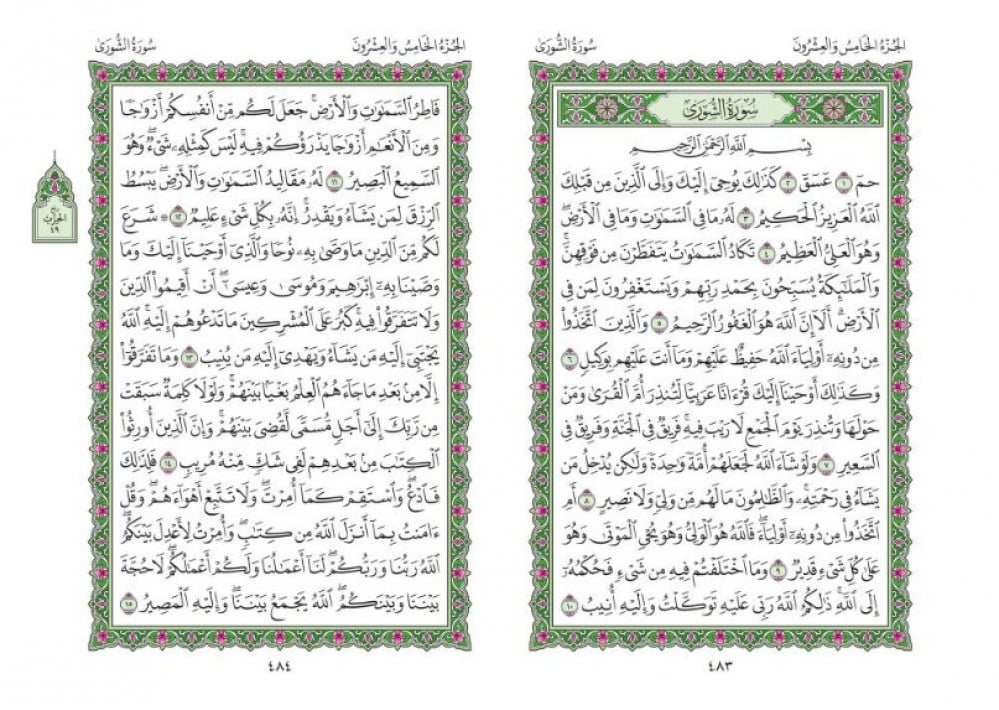 الجزء الخامس والعشرون
سورة الشورى
سُورَةُ الشُّورَىٰ
بِسْمِ ٱللَّهِ ٱلرَّحْمَٰنِ ٱلرَّحِيمِ
حمٓ ١ عٓسٓقٓ ٢ كَذَٰلِكَ يُوحِىٓ إِلَيْكَ وَإِلَى ٱلَّذِينَ مِن قَبْلِكَ
ٱللَّهُ ٱلْعَزِيزُ ٱلْحَكِيمُ ٣ لَهُۥ مَا فِى ٱلسَّمَٰوَٰتِ وَمَا فِى ٱلْأَرْضِۖ
وَهُوَ ٱلْعَلِىُّ ٱلْعَظِيمُ ٤ تَكَادُ ٱلسَّمَٰوَٰتُ يَتَفَطَّرْنَ مِن فَوْقِهِنَّۚ
وَٱلْمَلَٰٓئِكَةُ يُسَبِّحُونَ بِحَمْدِ رَبِّهِمْ وَيَسْتَغْفِرُونَ لِمَن فِى
ٱلْأَرْضِۗ أَلَآ إِنَّ ٱللَّهَ هُوَ ٱلْغَفُورُ ٱلرَّحِيمُ ٥ وَٱلَّذِينَ ٱتَّخَذُوا۟
مِن دُونِهِۦٓ أَوْلِيَآءَ ٱللَّهُ حَفِيظٌ عَلَيْهِمْ وَمَآ أَنتَ عَلَيْهِم بِوَكِيلٍ ٦
وَكَذَٰلِكَ أَوْحَيْنَآ إِلَيْكَ قُرْءَانًا عَرَبِيًّا لِّتُنذِرَ أُمَّ ٱلْقُرَىٰ وَمَنْ
حَوْلَهَا وَتُنذِرَ يَوْمَ ٱلْجَمْعِ لَا رَيْبَ فِيهِۚ فَرِيقٌ فِى ٱلْجَنَّةِ وَفَرِيقٌ فِى
ٱلسَّعِيرِ ٧ وَلَوْ شَآءَ ٱللَّهُ لَجَعَلَهُمْ أُمَّةً وَٰحِدَةً وَلَٰكِن يُدْخِلُ مَن
يَشَآءُ فِى رَحْمَتِهِۦۚ وَٱلظَّٰلِمُونَ مَا لَهُم مِّن وَلِىٍّ وَلَا نَصِيرٍ ٨ أَمِ
ٱتَّخَذُوا۟ مِن دُونِهِۦٓ أَوْلِيَآءَۖ فَٱللَّهُ هُوَ ٱلْوَلِىُّ وَهُوَ يُحْىِ ٱلْمَوْتَىٰ وَهُوَ
عَلَىٰ كُلِّ شَىْءٍ قَدِيرٌ ٩ وَمَا ٱخْتَلَفْتُمْ فِيهِ مِن شَىْءٍ فَحُكْمُهُۥٓ
إِلَى ٱللَّهِۚ ذَٰلِكُمُ ٱللَّهُ رَبِّى عَلَيْهِ تَوَكَّلْتُ وَإِلَيْهِ أُنِيبُ ١٠
٤٨٣
الجزء الخامس والعشرون
سورة الشورى
فَاطِرُ ٱلسَّمَٰوَٰتِ وَٱلْأَرْضِۚ جَعَلَ لَكُم مِّنْ أَنفُسِكُمْ أَزْوَٰجًا
وَمِنَ ٱلْأَنْعَٰمِ أَزْوَٰجًا يَذْرَؤُكُمْ فِيهِۚ لَيْسَ كَمِثْلِهِۦ شَىْءٌۖ وَهُوَ
ٱلسَّمِيعُ ٱلْبَصِيرُ ١١ لَهُۥ مَقَالِيدُ ٱلسَّمَٰوَٰتِ وَٱلْأَرْضِۖ يَبْسُطُ
ٱلرِّزْقَ لِمَن يَشَآءُ وَيَقْدِرُۚ إِنَّهُۥ بِكُلِّ شَىْءٍ عَلِيمٌ ١٢ ۞ شَرَعَ
لَكُم مِّنَ ٱلدِّينِ مَا وَصَّىٰ بِهِۦ نُوحًا وَٱلَّذِىٓ أَوْحَيْنَآ إِلَيْكَ وَمَا
وَصَّيْنَا بِهِۦٓ إِبْرَٰهِيمَ وَمُوسَىٰ وَعِيسَىٰٓۖ أَنْ أَقِيمُوا۟ ٱلدِّينَ
وَلَا تَتَفَرَّقُوا۟ فِيهِۚ كَبُرَ عَلَى ٱلْمُشْرِكِينَ مَا تَدْعُوهُمْ إِلَيْهِۚ ٱللَّهُ
يَجْتَبِىٓ إِلَيْهِ مَن يَشَآءُ وَيَهْدِىٓ إِلَيْهِ مَن يُنِيبُ ١٣ وَمَا تَفَرَّقُوٓا۟
إِلَّا مِنۢ بَعْدِ مَا جَآءَهُمُ ٱلْعِلْمُ بَغْيًۢا بَيْنَهُمْۚ وَلَوْلَا كَلِمَةٌ سَبَقَتْ
مِن رَّبِّكَ إِلَىٰٓ أَجَلٍ مُّسَمًّى لَّقُضِىَ بَيْنَهُمْۚ وَإِنَّ ٱلَّذِينَ أُورِثُوا۟
ٱلْكِتَٰبَ مِنۢ بَعْدِهِمْ لَفِى شَكٍّ مِّنْهُ مُرِيبٍ ١٤ فَلِذَٰلِكَ
فَٱدْعُۖ وَٱسْتَقِمْ كَمَآ أُمِرْتَۖ وَلَا تَتَّبِعْ أَهْوَآءَهُمْۖ وَقُلْ
ءَامَنتُ بِمَآ أَنزَلَ ٱللَّهُ مِن كِتَٰبٍۖ وَأُمِرْتُ لِأَعْدِلَ بَيْنَكُمُۖ
ٱللَّهُ رَبُّنَا وَرَبُّكُمْۖ لَنَآ أَعْمَٰلُنَا وَلَكُمْ أَعْمَٰلُكُمْۖ لَا حُجَّةَ
بَيْنَنَا وَبَيْنَكُمُۖ ٱللَّهُ يَجْمَعُ بَيْنَنَاۖ وَإِلَيْهِ ٱلْمَصِيرُ ١٥
٤٨٤
الحزب
٤٩